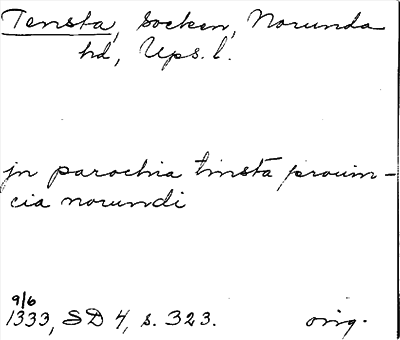 Tensta, socken, Norunda
hd, Ups. l.
jn parochia tinsta prouin-
cia norundi
9/6
1333, SD 4, s. 323. orig.